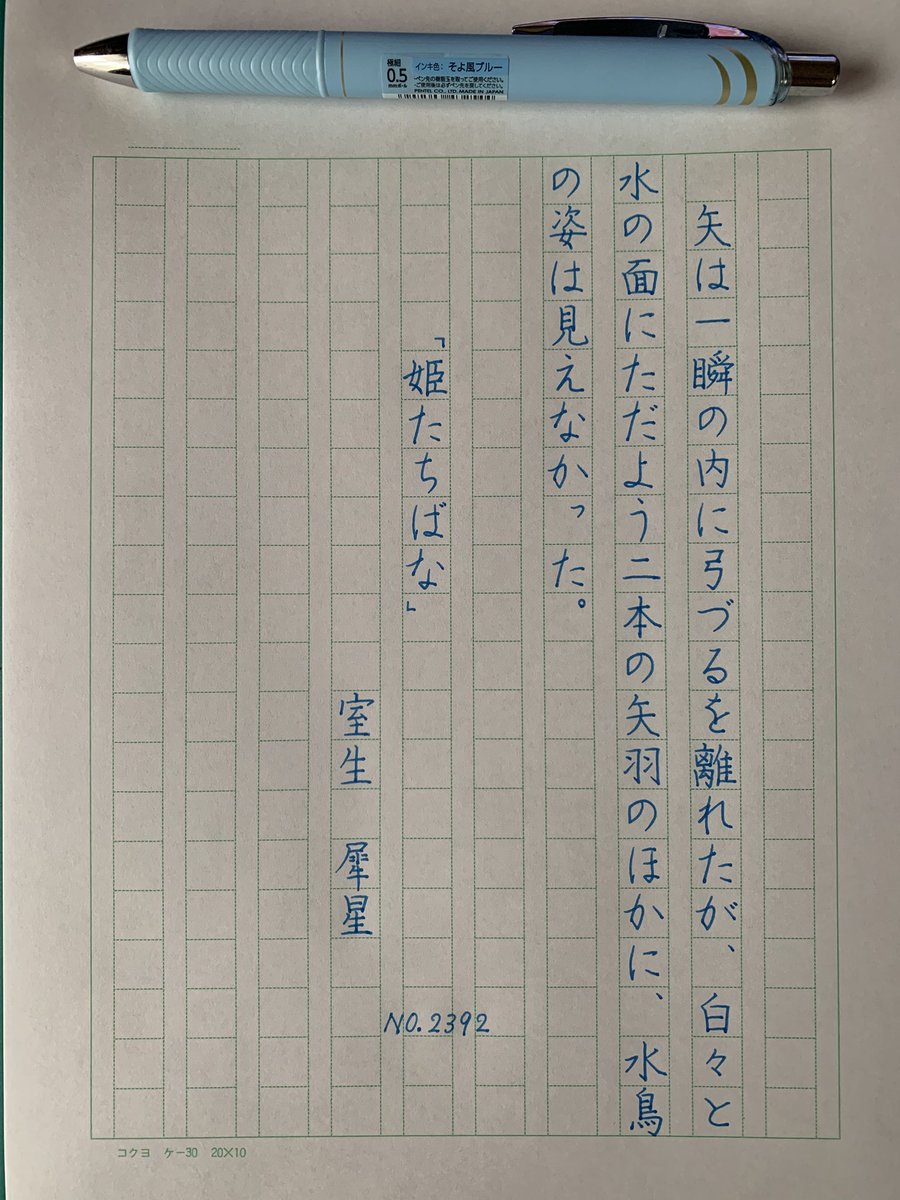 極細
0.5
mmボール
インキ色：そよ風ブルー
・ペン先の樹脂玉を取ってご使用ください。
・ご使用後は必ずペン先を戻してください。
PENTEL CO., LTD. MADE IN JAPAN
矢は一瞬の内に弓づるを離れたが、白々と
水の面にただよう二本の矢羽のほかに、水鳥
の姿は見えなかった。
「姫たちばな」
室生　犀星
NO.2392
コクヨ　ケー30　20×10